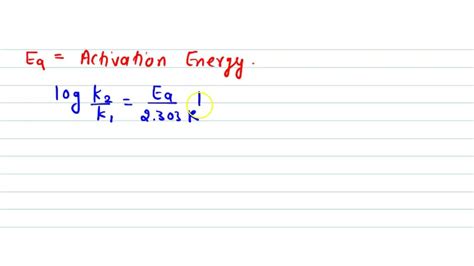 Ea = Activation Energy.
log K2/K1 = Ea/2.303 R 1